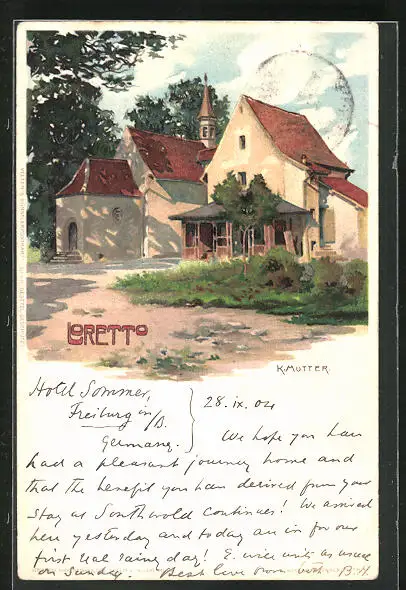 LORETTO
K. MUTTER.
Hotel Sommer,
Freiburg in/B.
Germany.
28. ix. 04
We hope you have
had a pleasant journey home and
that the benefit you have derived from your
stay at Southwold continues! We arrived
here yesterday and today are in for our
first real rainy day! E. will write as usual
on Sunday. Best love from both B.H